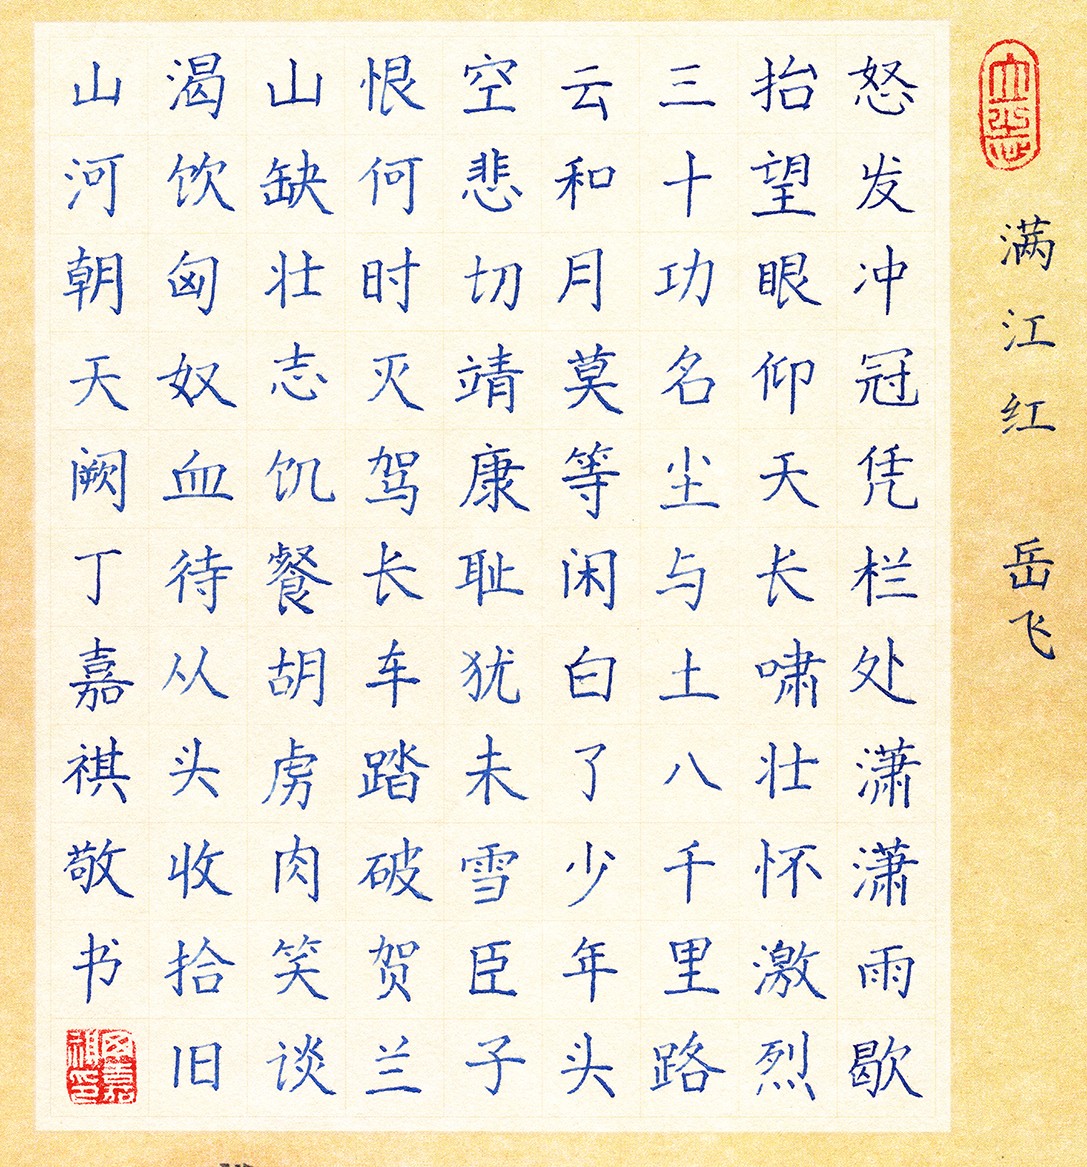 满江红 岳飞
怒发冲冠凭栏处潇潇雨歇
抬望眼仰天长啸壮怀激烈
三十功名尘与土八千里路
云和月莫等闲白了少年头
空悲切靖康耻犹未雪臣子
恨何时灭驾长车踏破贺兰
山缺壮志饥餐胡虏肉笑谈
渴饮匈奴血待从头收拾旧
山河朝天阙丁嘉祺敬书